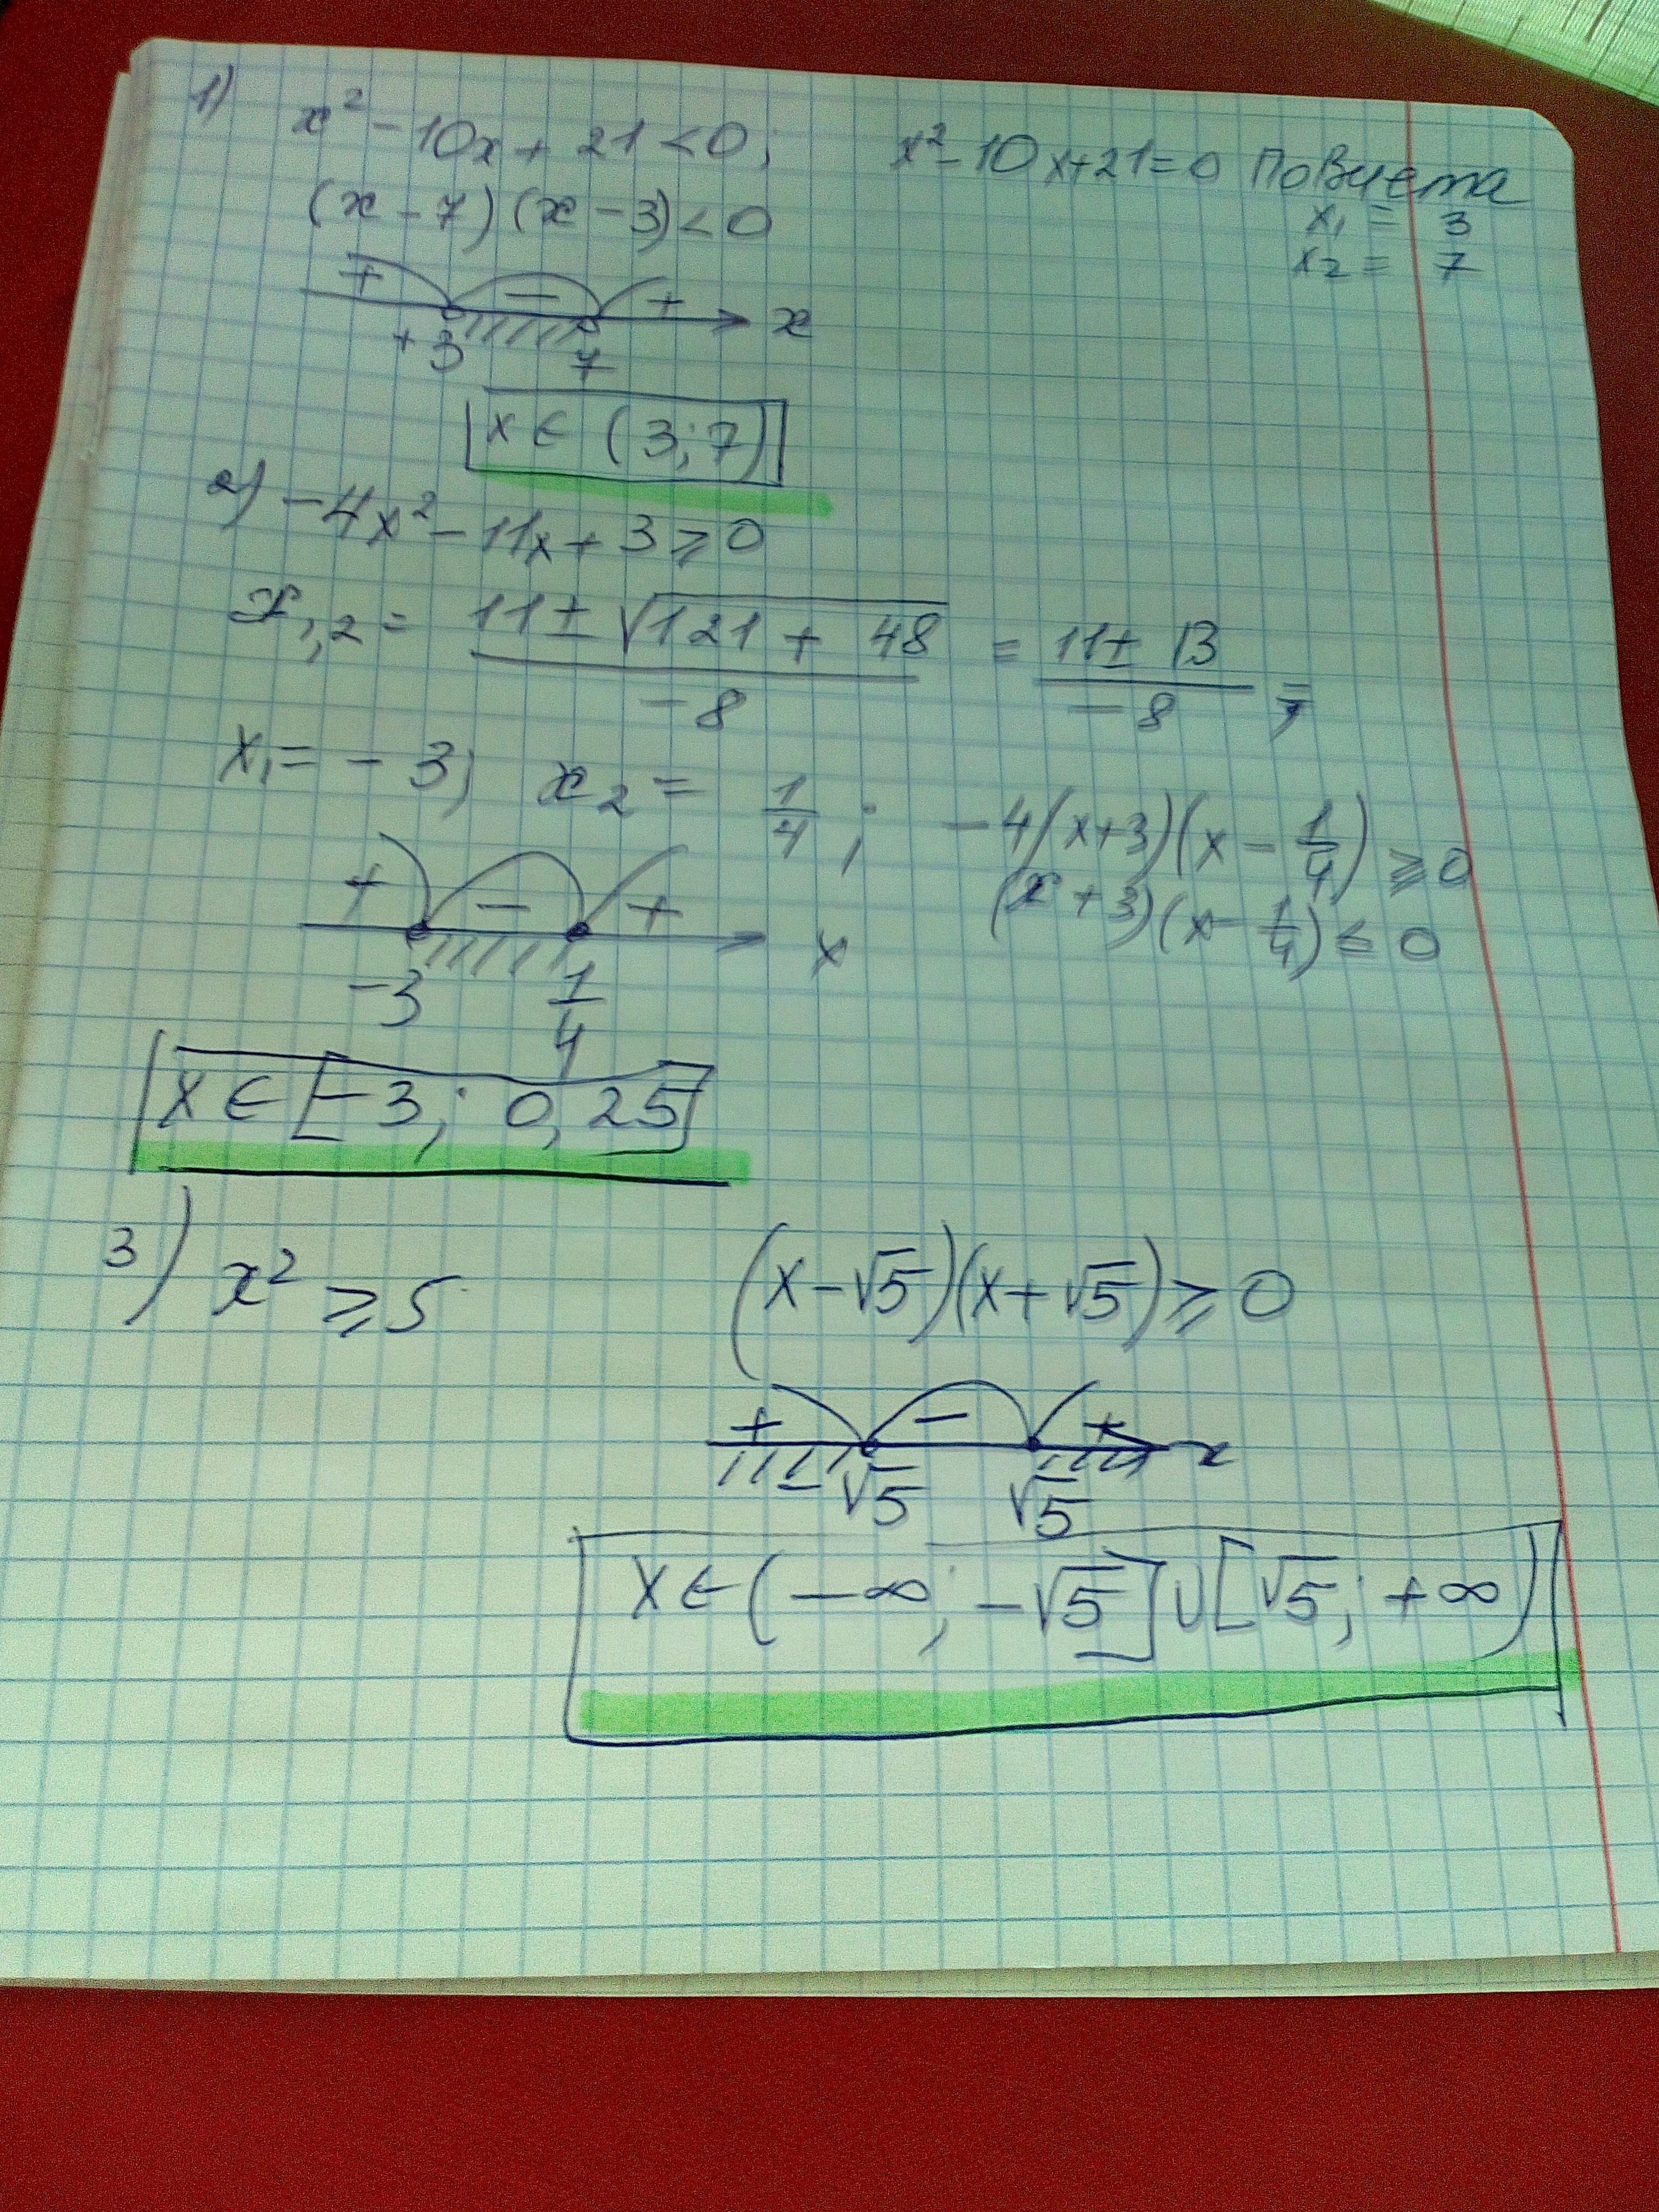 1) x² - 10x + 21 < 0; x² - 10x + 21 = 0 По Виета
(x - 7)(x - 3) < 0 x₁ = 3
x₂ = 7
+ - + x
+3 7
x ∈ (3; 7)
2) -4x² - 11x + 3 ≥ 0
x₁,₂ = (11 ± √(121 + 48))/(-8) = (11 ± 13)/(-8);
x₁ = -3; x₂ = 1/4; -4(x+3)(x - 1/4) ≥ 0
(x + 3)(x - 1/4) ≤ 0
+ - + x
-3 1/4
x ∈ [-3; 0,25]
3) x² ≥ 5 (x - √5)(x + √5) ≥ 0
+ - + x
-√5 √5
x ∈ (-∞; -√5] ∪ [√5; +∞)